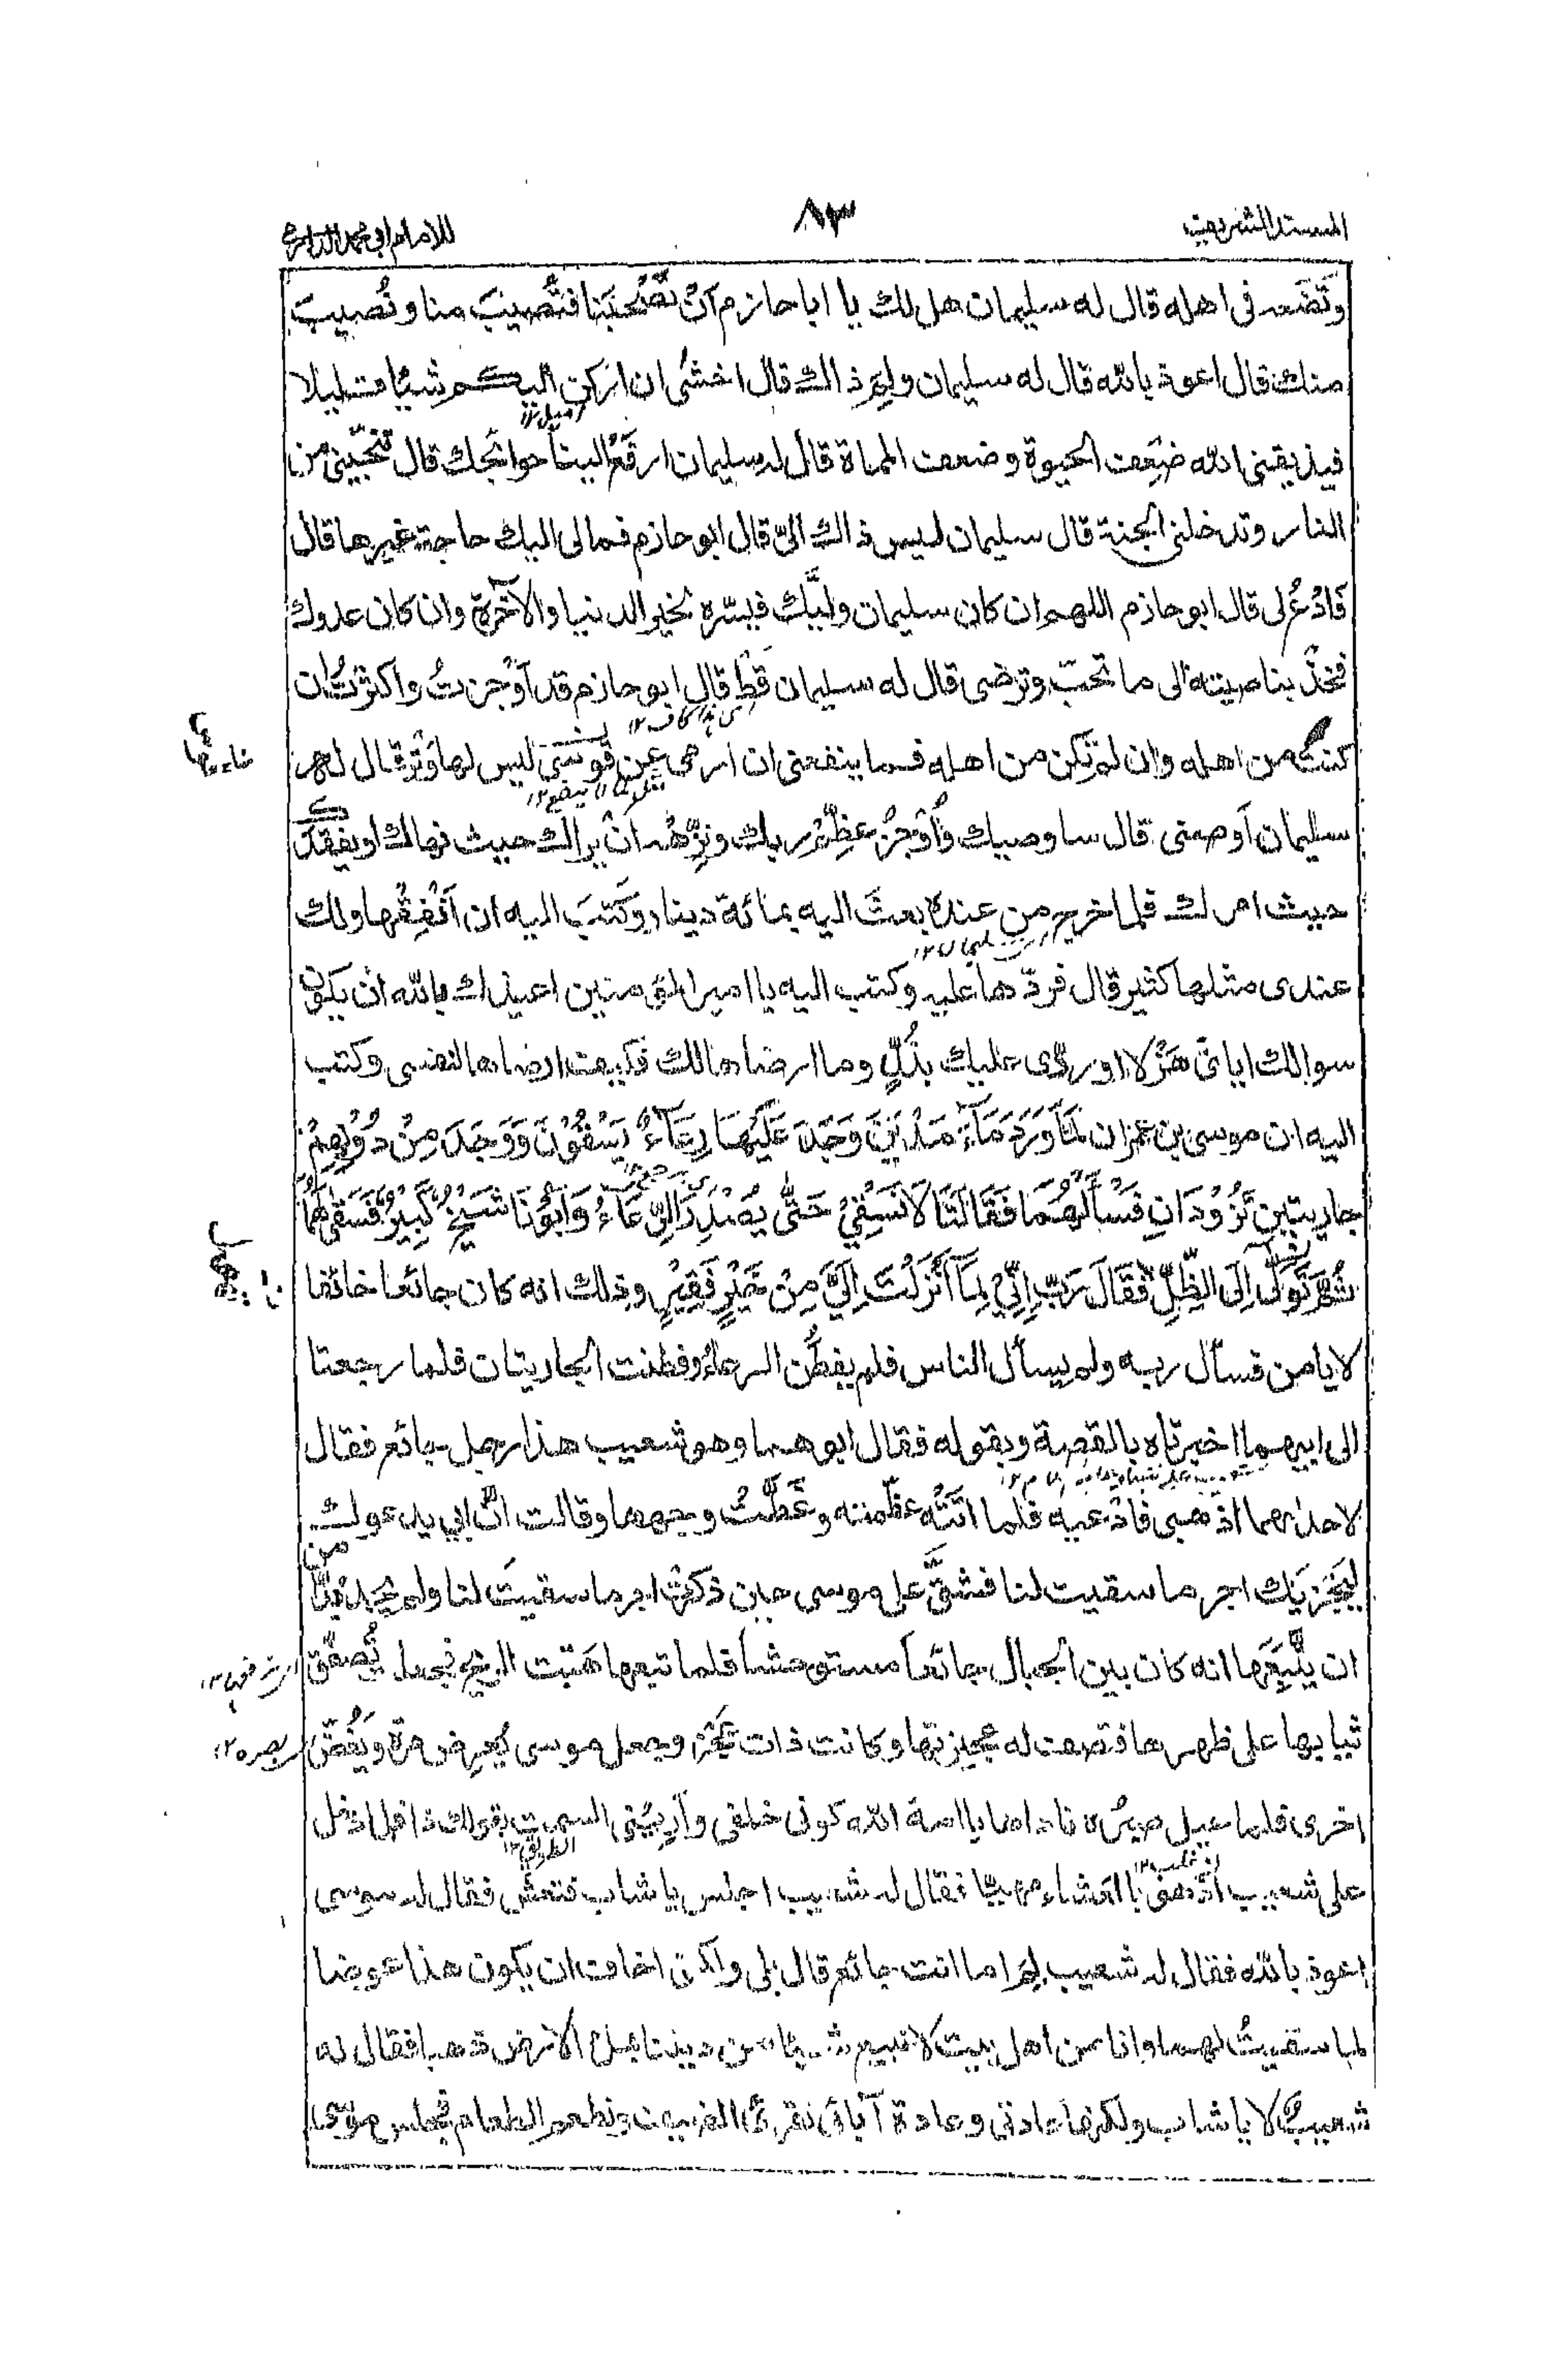 المسند الشريف
٨٣
للامام ابي محمد الدارمي
وتَضَعه فى اهله قال له سليمان هل لك يا ابا حازم اَنْ تَصْحَبَنا فتُصيبَ منا ونُصيبَ
منك قال اعوذ بالله قال له سليمان ولِمَ ذاك قال اخشى ان اركن اليكم شيئا قليلا
فيذيقنى الله ضِعفَ الحيوة وضعف المماة قال له سليمان ارفَعْ الينا حوائجك قال تنجّينى من
النار وتدخلنى الجنة قال سليمان ليس ذاك الىّ قال ابو حازم فمالى اليك حاجة غيرها قال
فَادْعُ لى قال ابو حازم اللهم ان كان سليمان وليَّك فيسّره لخير الدنيا والآخرة وان كان عدوك
فخُذْ بناصيته الى ما تحبّ وترضى قال له سليمان قَطْ قال ابو حازم قد اَوْجزتُ واكثرْتُ ان
كنتَ من اهله وان لم تكن من اهله فما ينفعنى ان ارمى عن قَوسٍ ليس لها وَتَر قال له
سليمان اَوصِنى قال ساوصيك واُوْجِزُ عظِّمْ ربك ونزِّهْه ان يراك حيث نهاك او يفقدك
حيث امرك فلما خرج من عنده بعثَ اليه بمائة دينار وكتبَ اليه ان اَنْفِقْها ولك
عندى مثلها كثير قال فردّها عليه وكتب اليه يا امير المؤمنين اعيذك بالله ان يكون
سوالك اياىّ هَزْلا او ردّى عليك بذُلٍّ وما ارضاها لك فكيف ارضاها لنفسى وكتب
اليه ان موسى بن عمران لَمَّا وَرَدَ مَآءَ مَدْيَنَ وَجَدَ عَلَيْهَا رِعَاءً يَسْقُوْنَ وَوَجَدَ مِنْ دُوْنِهِمْ
جاريتين تَزُوْدَانِ فَسَأَلَهُمَا فَقَالَتَا لَا نَسْقِىْ حَتّٰى يُصْدِرَ الرِّعَاءُ وَاَبُوْنَا شَيْخٌ كَبِيْرٌ فَسَقٰى لَهُمَا
ثُمَّ تَوَلّٰى اِلَى الظِّلِّ فَقَالَ رَبِّ اِنِّىْ لِمَا اَنْزَلْتَ اِلَىَّ مِنْ خَيْرٍ فَقِيْرٌ وذلك انه كان جائعا خائفا
لا يامن فسأل ربه ولم يسأل الناس فلم يفطُن الرعاءُ وفطنت الجاريتان فلما رجعتا
الى ابيهما اخبرتاه بالقصة وبقوله فقال ابوهما وهو شعيب هذا رجل جائع فقال
لاحداهما اذهبى فادْعيه فلما اتتْه عظّمته وغَطَّتْ وجهها وقالت انّ ابي يدعوك
لِيَجْزِيَك اجر ما سقيت لنا فشقَّ على موسى حين ذكرتْ اجر ما سقيتَ لنا ولم يَجِد بُدًّا من
ان يتْبَعَها انه كان بين الجبال جائعا مستوحشا فلما تبعها هَبّت الريح فجعل تُصفّق
ثيابها على ظهرها فتصف له عجيزتها وكانت ذات عَجُز وجعل موسى يُعرِض مرة ويَغُضّ
اخرى فلما عيل صبرُه ناداها يا امة الله كونى خلفى وأريْنى السمت بقولك ذا فلما دخل
الطريق ١٢
على شعيب اذ هو بالعَشاء مهيّئا فقال له شعيب اجلس يا شاب فتعشّ فقال له موسى
اعوذ بالله فقال له شعيب لِمَ اما انت جائع قال بلى ولكنى اخاف ان يكون هذا عوضا
لما سقيتُ لهما وانا من اهل بيت لا نبيع شيئا من ديننا بملأ الارض ذهبا فقال له
شعيبٌ لا يا شاب ولكنها عادتى وعادة آبائى نقرىُ الضيف ونطعم الطعام فجلس موسى